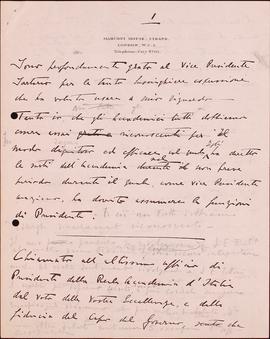 1
MARCONI HOUSE, STRAND,
LONDON, W.C.2.
Sono profondamente grato al Vice Presidente
per le tanto lusinghiere espressione
che ha voluto usare a mio riguardo.
Tanto io che gli Accademici tutti dobbiamo
esser assai riconoscenti per il
modo dignitoso ed efficace col quale Egli diretto
le sorti dell'Accademia durante un non breve
periodo durante il quale, come Vice Presidente
anziano, ha dovuto assumere le funzioni
di Presidente.
Chiamato all'Altissimo ufficio di
Presidente della Reale Accademia d'Italia
dal voto delle Vostre Eccellenze, e dalla
fiducia del Capo del Governo, sento che